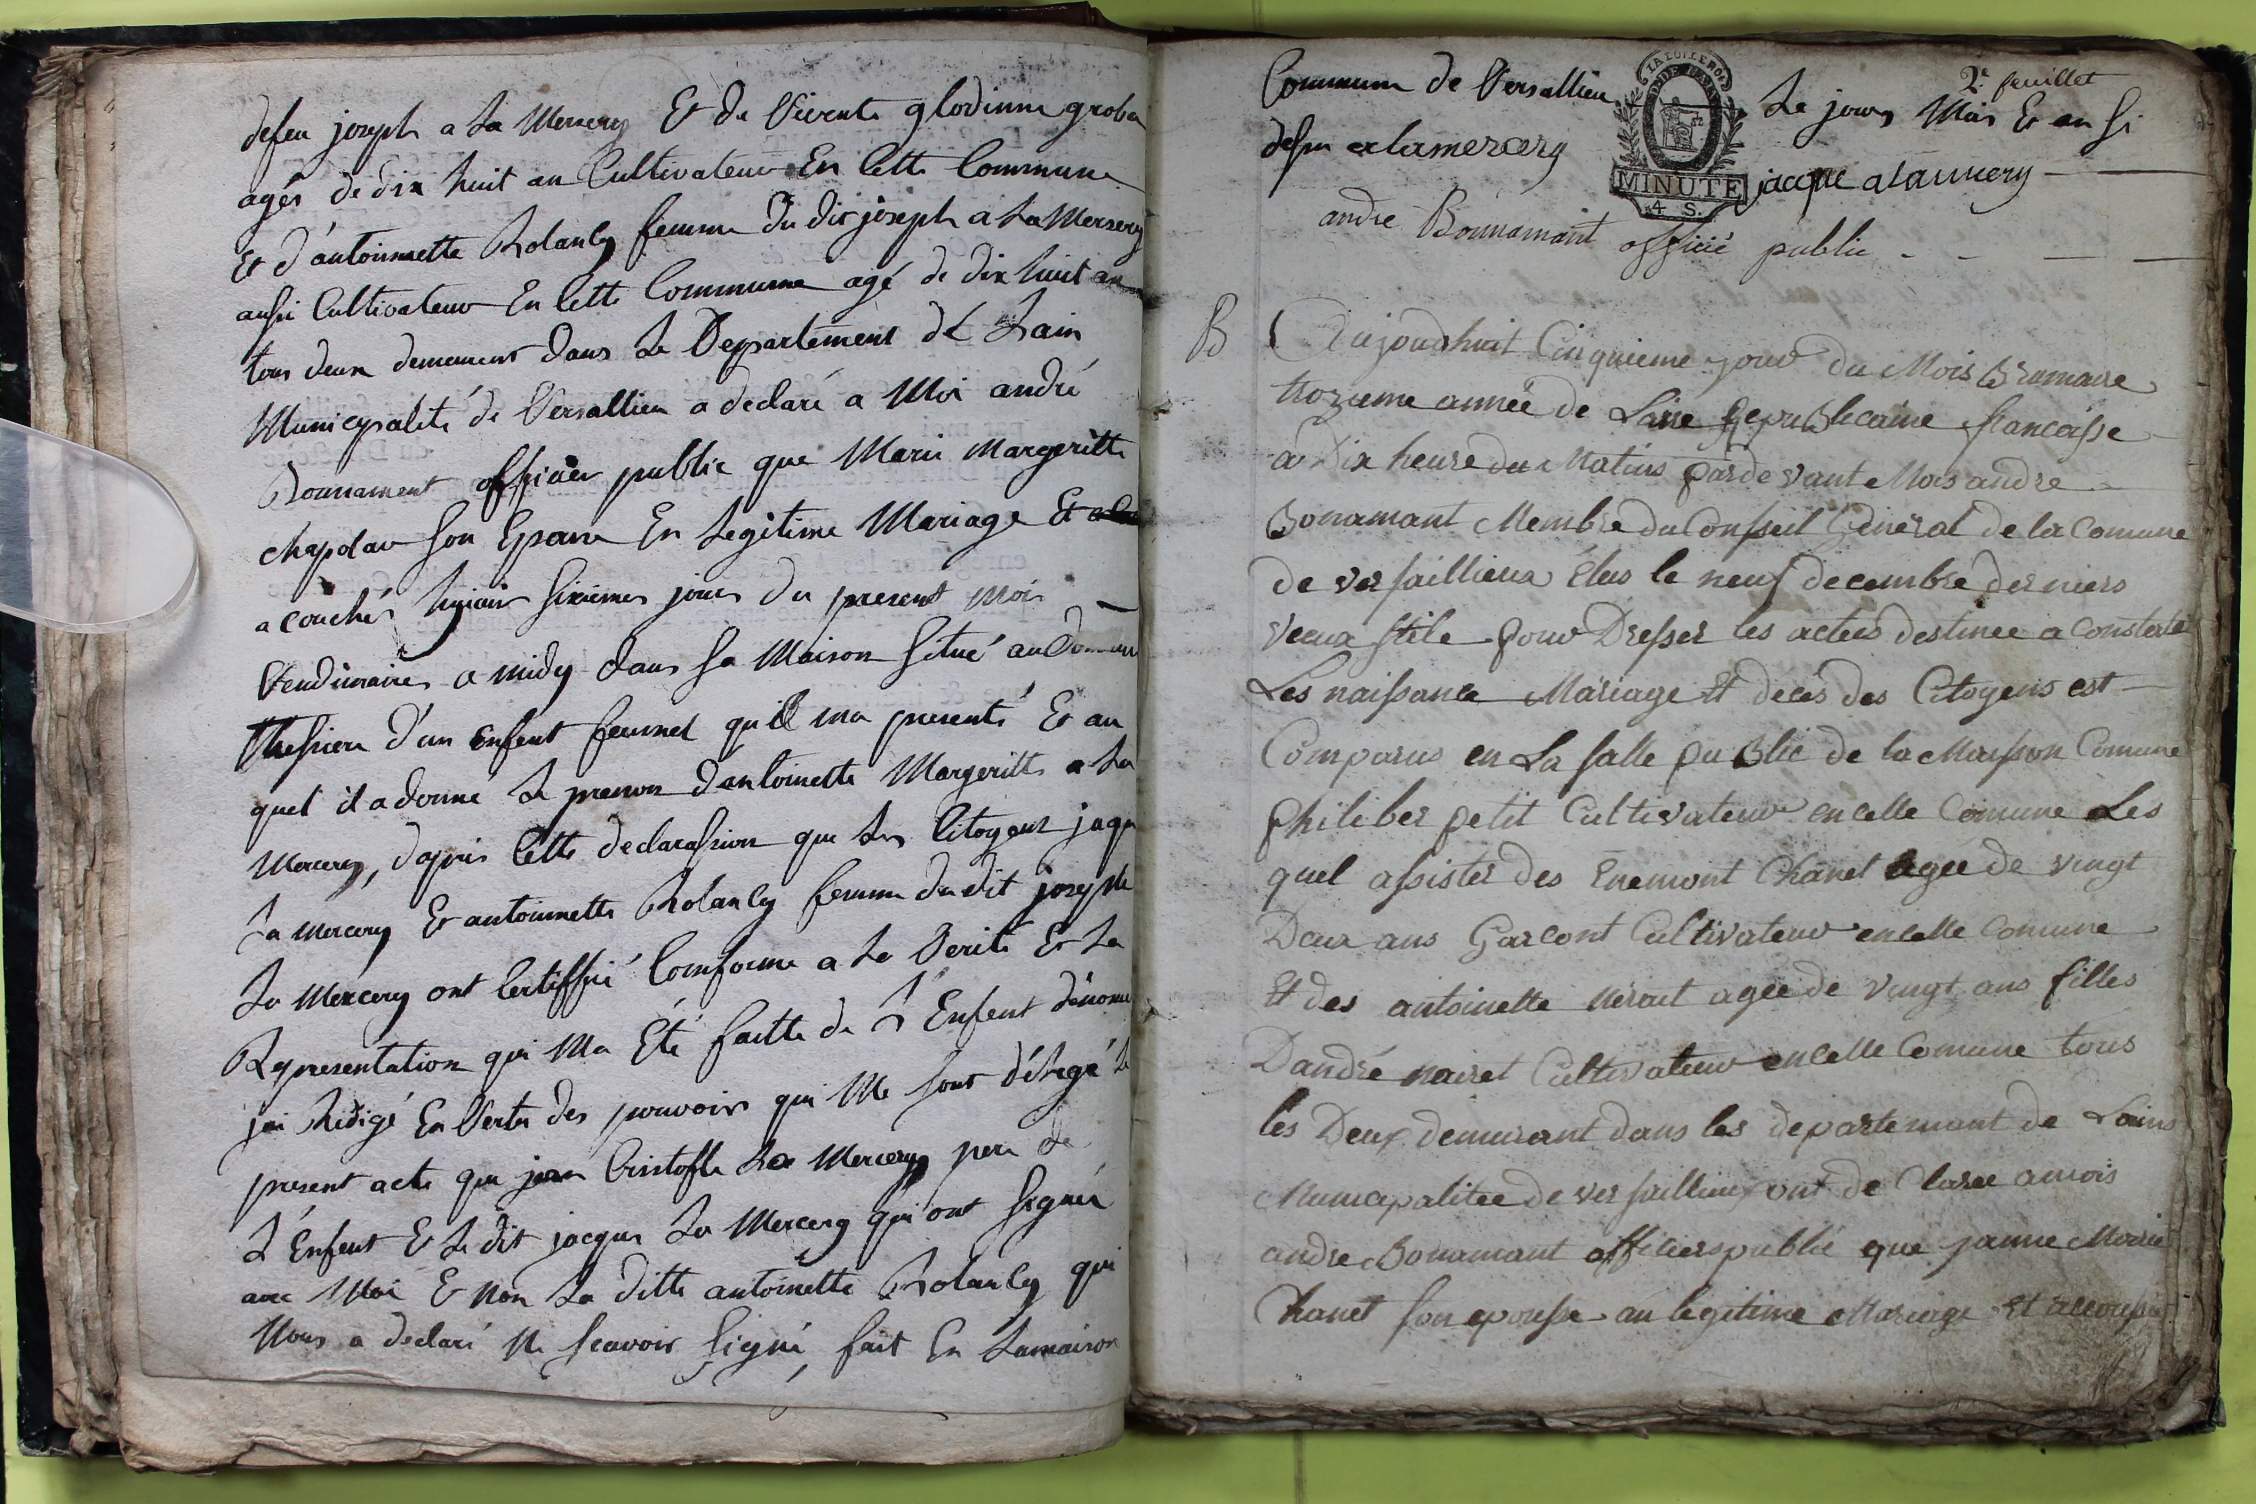 defeu joseph a La Mercery Et de Vivente glodinne groba
agés de dix huit an Cultivateur En Cette Commune
Et d'antoinnette Rolanly femme du dit joseph a La Mersery
aussi Cultivateur En Cette Commune agé de dix huit an
tous deux demeurent dans Le Departement de Lain
Municipalité de Versallieu a declaré a Moi andré
Bonnament officier public que Marie Margeritte
chapolar son Epouse En Legitime Mariage Et
a couchér sixiemes jours du present mois
Vendimaires a midy dans sa Maison situé au
thessieu d'un Enfent femnel qu'il ma presenté Et au
quel il a donne Le prenon dantoinette Margeritte a La
Mercery, dapris Cette declarassion que Les Citoyens jaque
La Mercery Et antoinnette Rolanly femme du dit joseph
La Mercery ont Certiffié Comforme a La Verité Et La
Representation qui Ma Eté faitte de L'Enfent dénomé
jai Redigé En Vertu des pouvoirs qui Me sont délegé Le
present acte que jean Cristofle La Mercery pere de
L'Enfent Et Le dit jacques La Mercery qui ont signér
avec Moi Et non La ditte antoinette Rolanly qui
Nous a declaré Ne scavoir signé, fait En Lamaison
2e feuillet
Commune de Versallieu Le jours Mois Et an
LA LOI LE ROI
MINUTE
4. S.
alamercery jacque alamercery
andre Bonnamant officié public
B Aujourdhuit Cinquieme jour du Mois Brumaire
trozieme année de Laire Republicaine francaisse
a Dix heure du Matins par de vant Mois andre
Bonamant Membre du Conseil Géneral de la Comune
de versaillieux élus le neuf decembre derniers
vieux stile pour Dresser les actees destinee a Constaté
Les naissance Mariage Et decés des Citoyens est
Comparus en La salle publlic de la Maisson Comune
philiber petit Cultivateur en celle Comune Les
quel assister des Enemont Chanel agée de vingt
Deux ans Garcont Cultivateur encelle Comune
Et des antoinette nérout agée de vingt ans filles
Dandré nairet Cultivateur encelle Comune tous
lés Deux demurant dans les departemant de Lains
Municipalitee de versaillieux ont de Claree amois
andre Bonamant officiers publié que janne Marie
Chanet son epousse au legitime Mariage Et